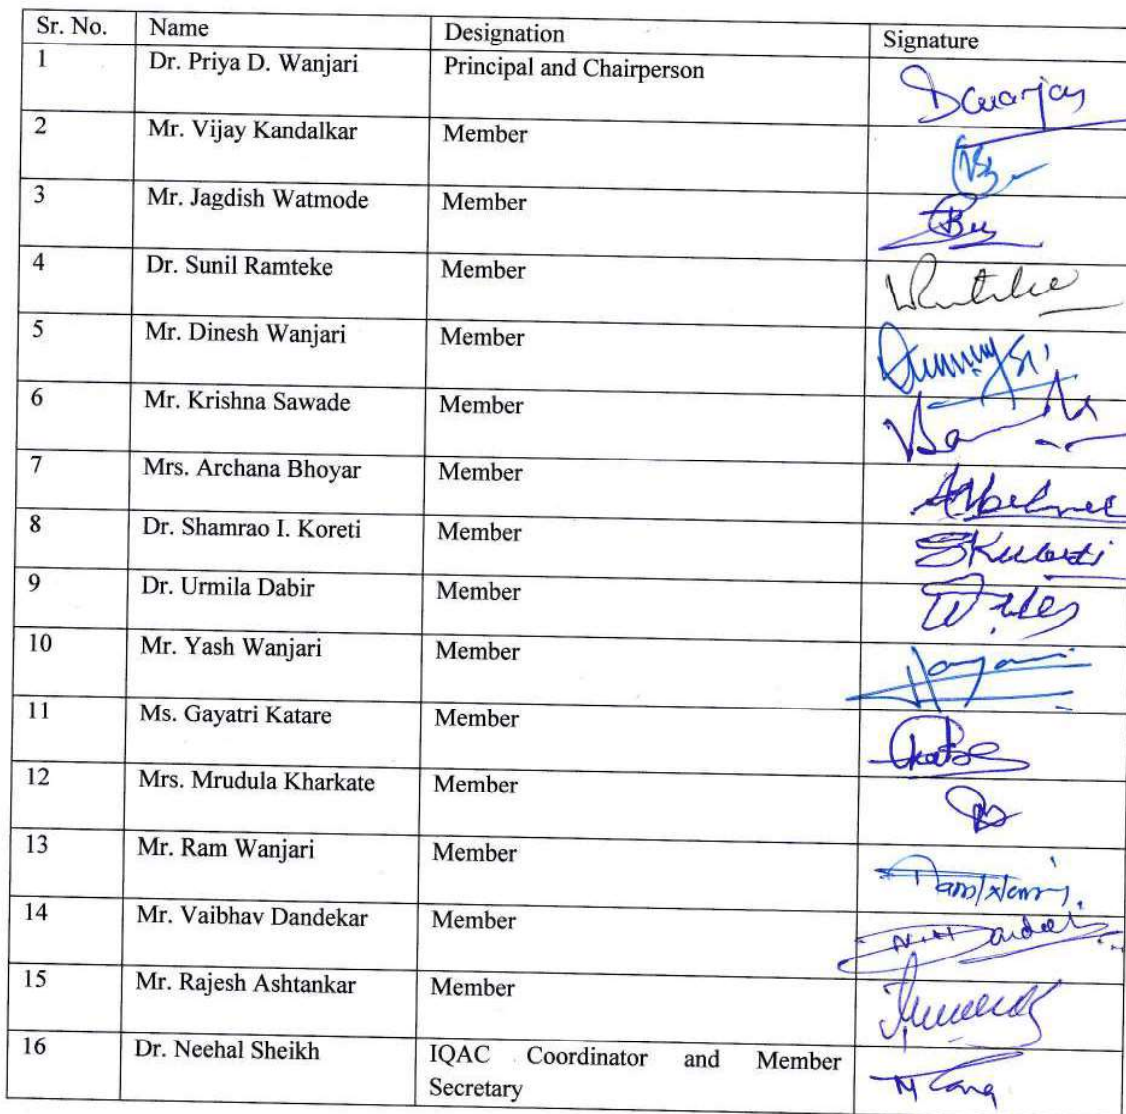 Sr. No. Name Designation Signature
1 Dr. Priya D. Wanjari Principal and Chairperson
2 Mr. Vijay Kandalkar Member
3 Mr. Jagdish Watmode Member
4 Dr. Sunil Ramteke Member
5 Mr. Dinesh Wanjari Member
6 Mr. Krishna Sawade Member
7 Mrs. Archana Bhoyar Member
8 Dr. Shamrao I. Koreti Member
9 Dr. Urmila Dabir Member
10 Mr. Yash Wanjari Member
11 Ms. Gayatri Katare Member
12 Mrs. Mrudula Kharkate Member
13 Mr. Ram Wanjari Member
14 Mr. Vaibhav Dandekar Member
15 Mr. Rajesh Ashtankar Member
16 Dr. Neehal Sheikh IQAC Coordinator and Member
Secretary